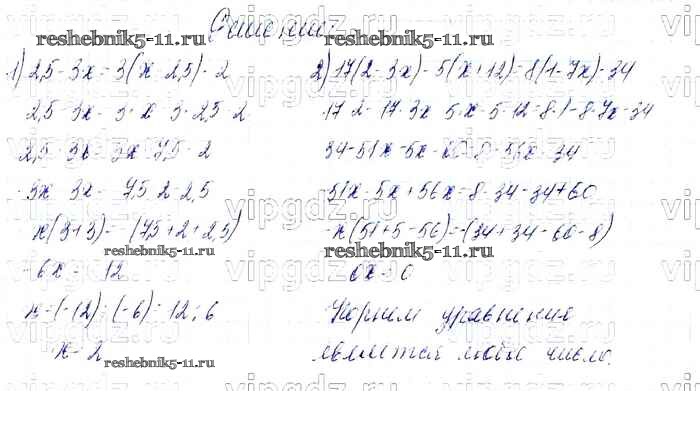 Решение
1) 2,5 - 3x = 3(x - 2,5) - 2
2,5 - 3x = 3 · x - 3 · 2,5 - 2
2,5 - 3x = 3x - 7,5 - 2
-3x - 3x = -7,5 - 2 - 2,5
-x(3+3) = -(7,5+2+2,5)
-6x = -12
x = (-12) : (-6) = 12 : 6
x = 2
2) 17(2 - 3x) - 5(x + 12) = 8(1 - 7x) - 34
17 · 2 - 17 · 3x - 5 · x - 5 · 12 = 8 · 1 - 8 · 7x - 34
34 - 51x - 5x - 60 = 8 - 56x - 34
-51x - 5x + 56x = 8 - 34 - 34 + 60
-x(51+5-56) = -(34+34-60-8)
0x = 0
Корнем уравнения
является любое число.
reshebnik5-11.ru
reshebnik5-11.ru
reshebnik5-11.ru
reshebnik5-11.ru
reshebnik5-11.ru
reshebnik5-11.ru
vipgdz.ru